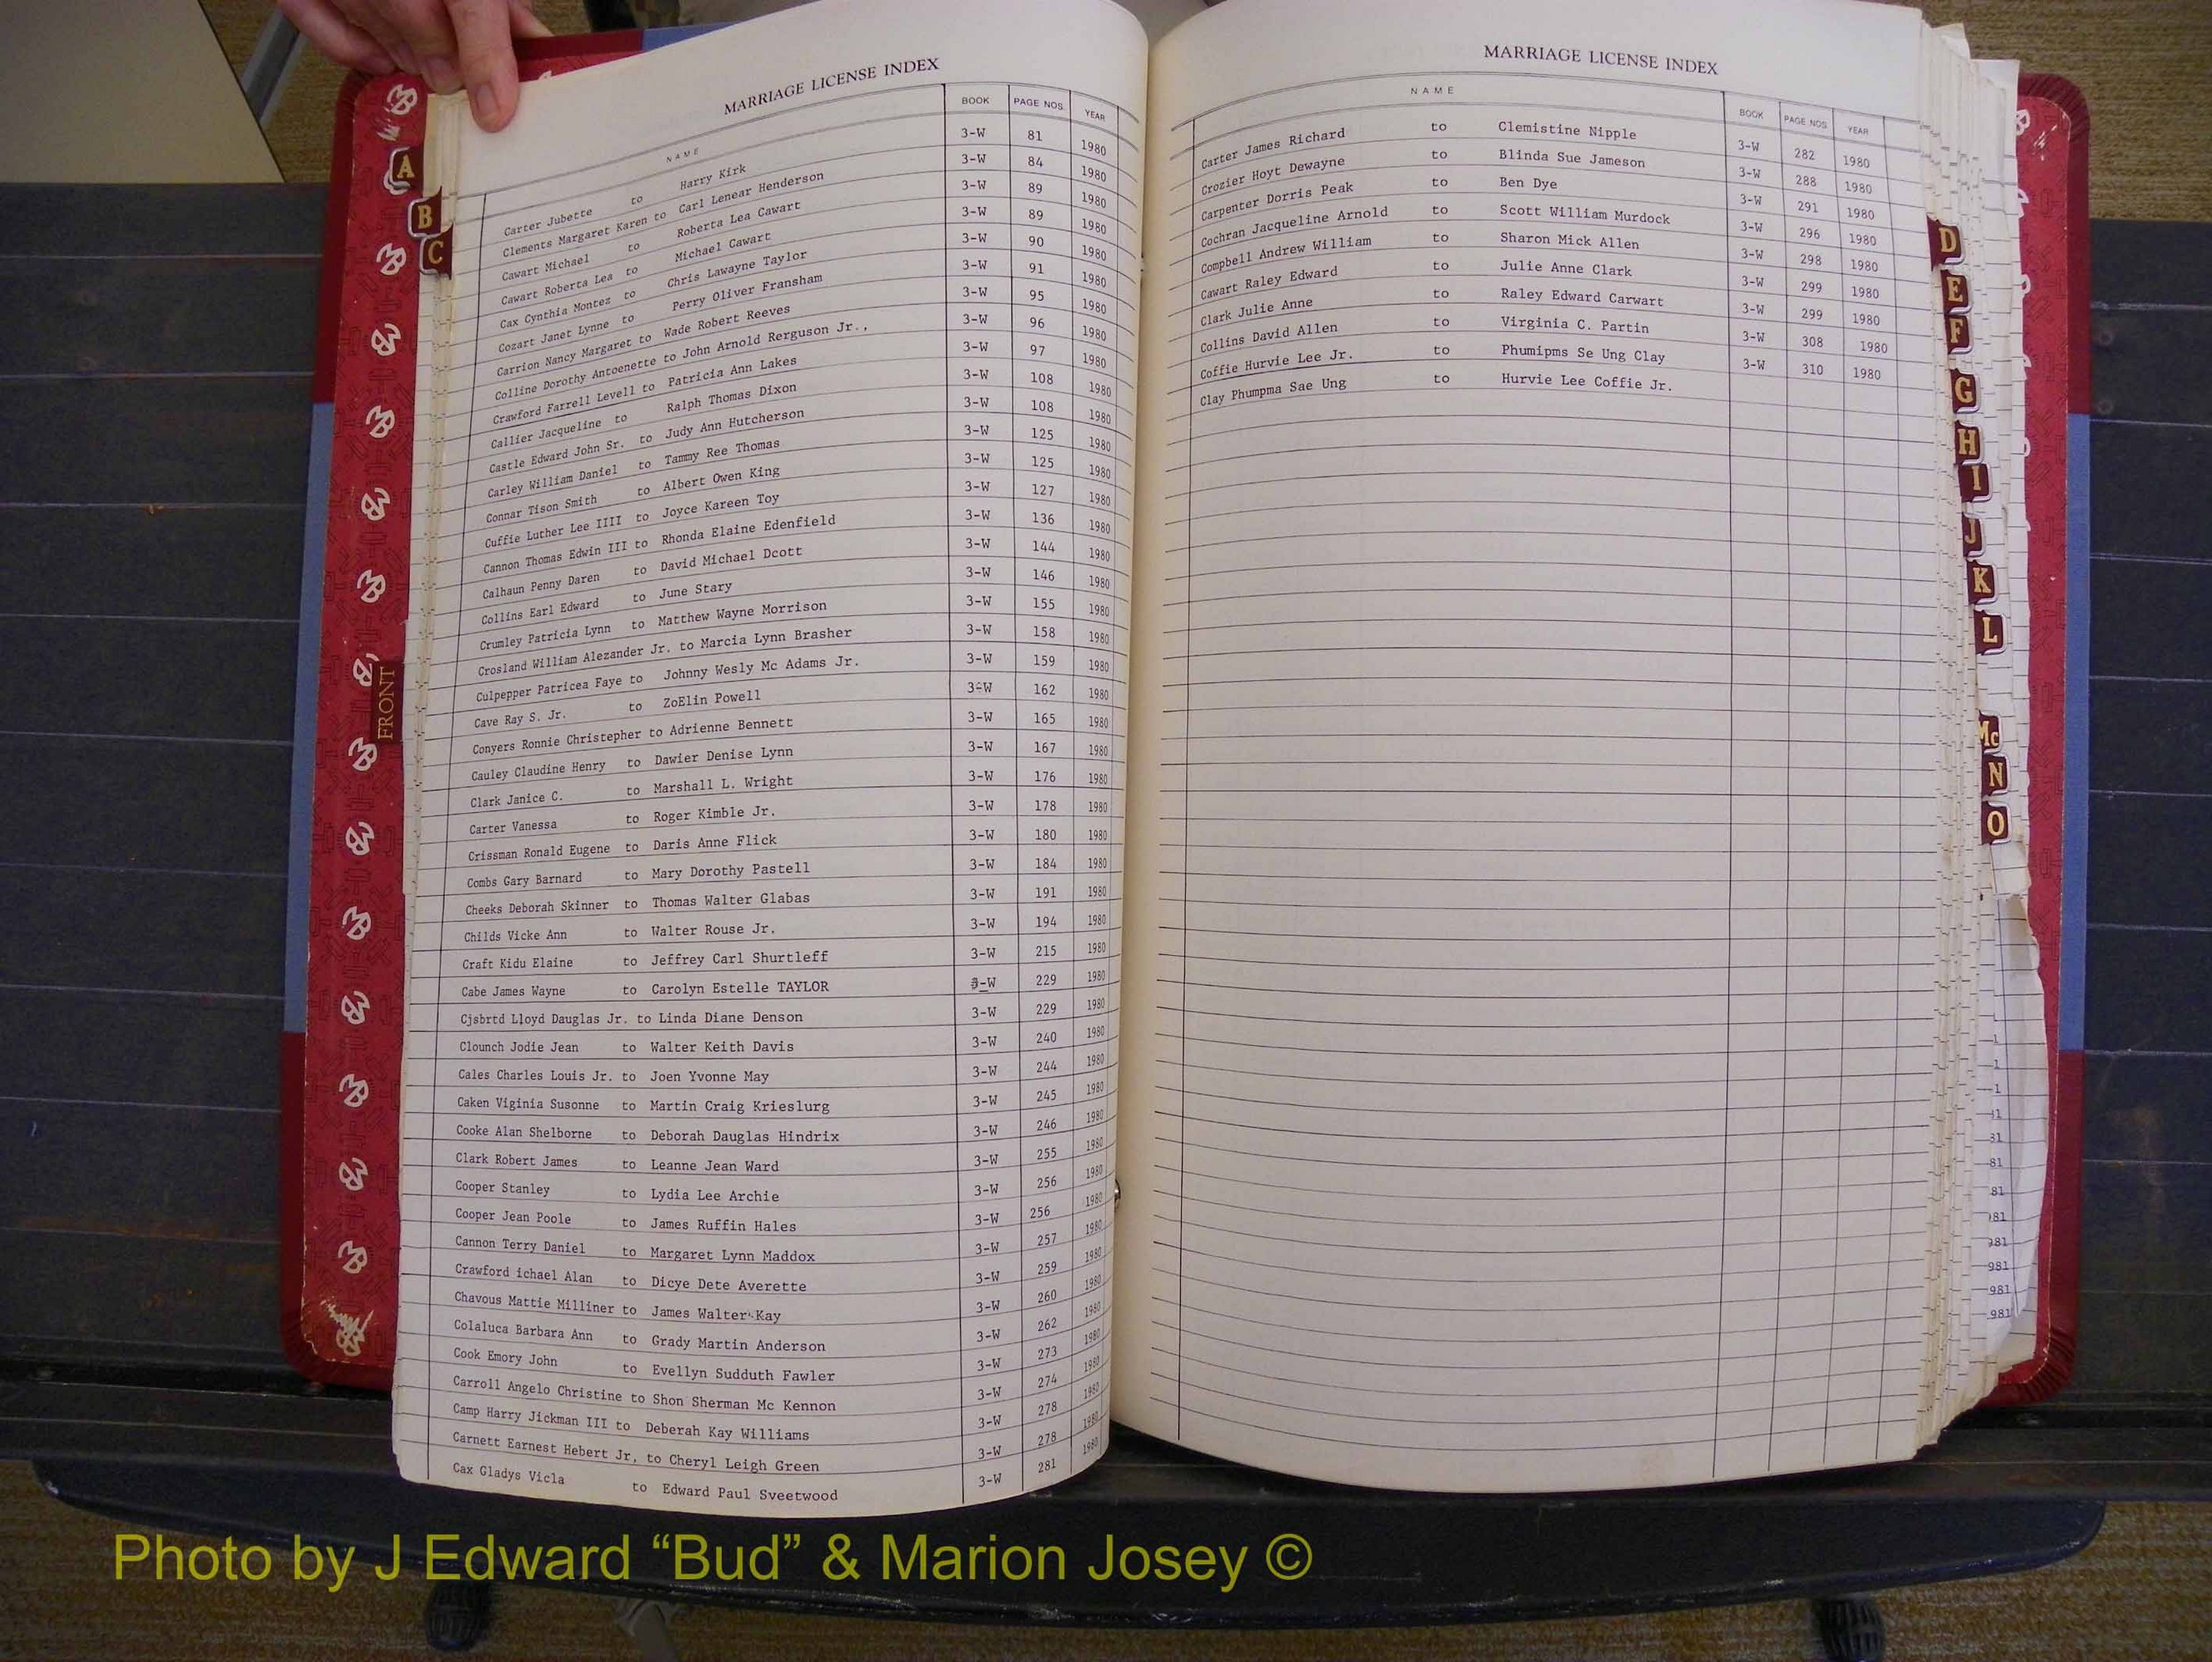 MARRIAGE LICENSE INDEX
NAME BOOK PAGE NOS. YEAR
Carter Jubette to Harry Kirk 3-W 81 1980
Clements Margaret Karen to Carl Lenear Henderson 3-W 84 1980
Cawart Michael to Roberta Lea Cawart 3-W 89 1980
Cawart Roberta Lea to Michael Cawart 3-W 89 1980
Cax Cynthia Montez to Chris Lawayne Taylor 3-W 90 1980
Cozart Janet Lynne to Perry Oliver Fransham 3-W 91 1980
Carrion Nancy Margaret to Wade Robert Reeves 3-W 95 1980
Colline Dorothy Antoenette to John Arnold Rerguson Jr., 3-W 96 1980
Crawford Farrell Levell to Patricia Ann Lakes 3-W 97 1980
Callier Jacqueline to Ralph Thomas Dixon 3-W 108 1980
Castle Edward John Sr. to Judy Ann Hutcherson 3-W 108 1980
Carley William Daniel to Tammy Ree Thomas 3-W 125 1980
Connar Tison Smith to Albert Owen King 3-W 125 1980
Cuffie Luther Lee IIII to Joyce Kareen Toy 3-W 127 1980
Cannon Thomas Edwin III to Rhonda Elaine Edenfield 3-W 136 1980
Calhaun Penny Daren to David Michael Dcott 3-W 144 1980
Collins Earl Edward to June Stary 3-W 146 1980
Crumley Patricia Lynn to Matthew Wayne Morrison 3-W 155 1980
Crosland William Alezander Jr. to Marcia Lynn Brasher 3-W 158 1980
Culpepper Patricea Faye to Johnny Wesly Mc Adams Jr. 3-W 159 1980
Cave Ray S. Jr. to ZoElin Powell 3-W 162 1980
Conyers Ronnie Christepher to Adrienne Bennett 3-W 165 1980
Cauley Claudine Henry to Dawier Denise Lynn 3-W 167 1980
Clark Janice C. to Marshall L. Wright 3-W 176 1980
Carter Vanessa to Roger Kimble Jr. 3-W 178 1980
Crissman Ronald Eugene to Daris Anne Flick 3-W 180 1980
Combs Gary Barnard to Mary Dorothy Pastell 3-W 184 1980
Cheeks Deborah Skinner to Thomas Walter Glabas 3-W 191 1980
Childs Vicke Ann to Walter Rouse Jr. 3-W 194 1980
Craft Kidu Elaine to Jeffrey Carl Shurtleff 3-W 215 1980
Cabe James Wayne to Carolyn Estelle TAYLOR 3-W 229 1980
Cjsbrtd Lloyd Dauglas Jr. to Linda Diane Denson 3-W 229 1980
Clounch Jodie Jean to Walter Keith Davis 3-W 240 1980
Cales Charles Louis Jr. to Joen Yvonne May 3-W 244 1980
Caken Viginia Susonne to Martin Craig Krieslurg 3-W 245 1980
Cooke Alan Shelborne to Deborah Dauglas Hindrix 3-W 246 1980
Clark Robert James to Leanne Jean Ward 3-W 255 1980
Cooper Stanley to Lydia Lee Archie 3-W 256 1980
Cooper Jean Poole to James Ruffin Hales 3-W 256 1980
Cannon Terry Daniel to Margaret Lynn Maddox 3-W 257 1980
Crawford ichael Alan to Dicye Dete Averette 3-W 259 1980
Chavous Mattie Milliner to James Walter Kay 3-W 260 1980
Colaluca Barbara Ann to Grady Martin Anderson 3-W 262 1980
Cook Emory John to Evellyn Sudduth Fawler 3-W 273 1980
Carroll Angelo Christine to Shon Sherman Mc Kennon 3-W 274 1980
Camp Harry Jickman III to Deberah Kay Williams 3-W 278 1980
Carnett Earnest Hebert Jr, to Cheryl Leigh Green 3-W 278 1980
Cax Gladys Vicla to Edward Paul Sveetwood 3-W 281
MARRIAGE LICENSE INDEX
NAME BOOK PAGE NOS YEAR
Carter James Richard to Clemistine Nipple 3-W 282 1980
Crozier Hoyt Dewayne to Blinda Sue Jameson 3-W 288 1980
Carpenter Dorris Peak to Ben Dye 3-W 291 1980
Cochran Jacqueline Arnold to Scott William Murdock 3-W 296 1980
Compbell Andrew William to Sharon Mick Allen 3-W 298 1980
Cawart Raley Edward to Julie Anne Clark 3-W 299 1980
Clark Julie Anne to Raley Edward Carwart 3-W 299 1980
Collins David Allen to Virginia C. Partin 3-W 308 1980
Coffie Hurvie Lee Jr. to Phumipms Se Ung Clay 3-W 310 1980
Clay Phumpma Sae Ung to Hurvie Lee Coffie Jr.
A
B
C
FRONT
D
E
F
G
H
I
J
K
L
Mc
N
O
1
1
1
81
81
81
81
981
981
981
981
Photo by J Edward “Bud” & Marion Josey ©